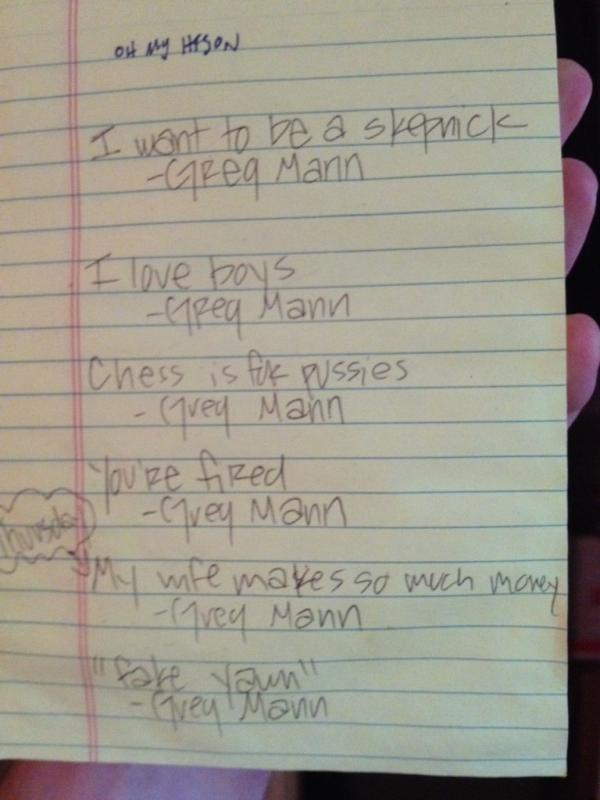 OH MY HESON
I want to be a skepnick
-Greg Mann
I love boys
-Greg Mann
Chess is for pussies
-Greg Mann
You're fired
-Greg Mann
Thursday
My wife makes so much money
-Greg Mann
"fake yawn"
-Greg Mann